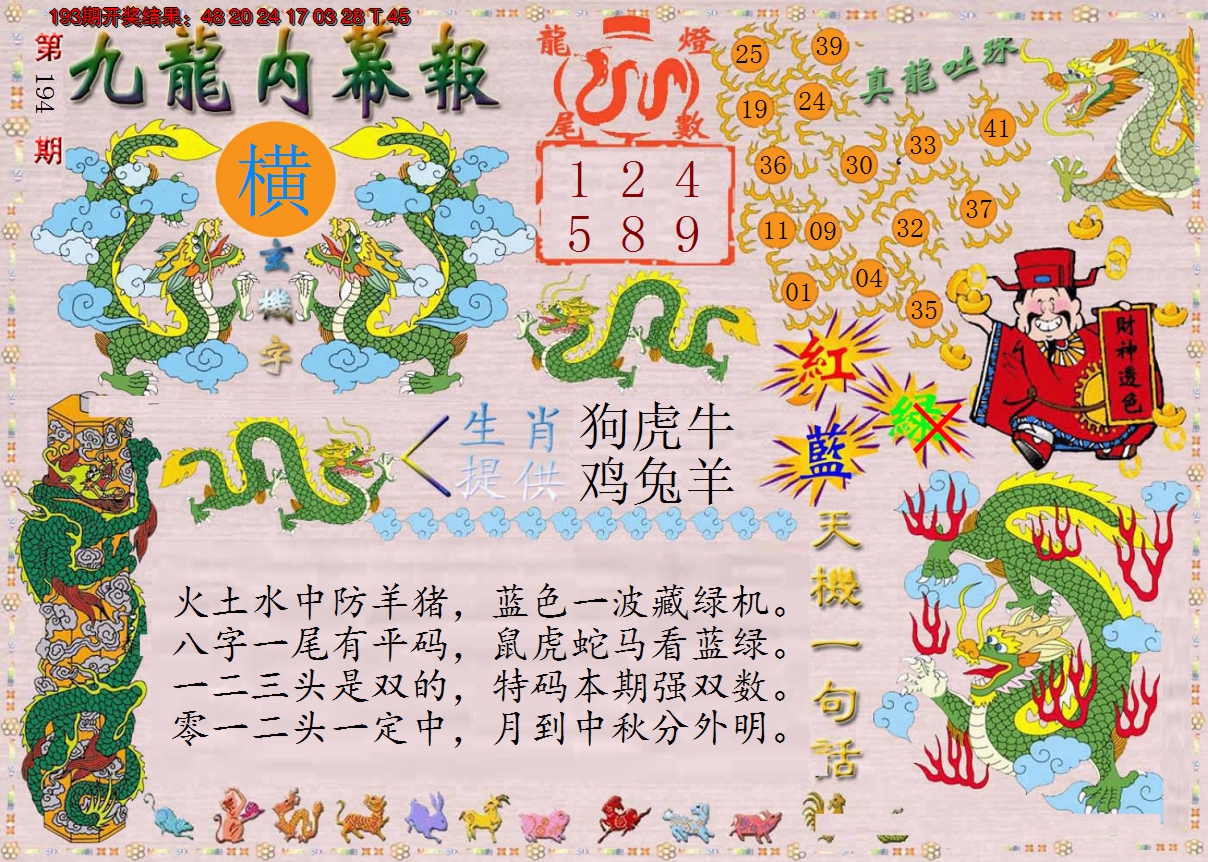 193期开奖结果：48 20 24 17 03 28 T 45
第194期
九龍内幕報
横
玄機字
龍燈尾數
1 2 4
5 8 9
真龍吐珠
25
39
19
24
33
41
36
30
37
11
09
32
01
04
35
財神透色
紅
綠
藍
生肖 狗虎牛
提供 鸡兔羊
天機一句话
火土水中防羊猪，蓝色一波藏绿机。
八字一尾有平码，鼠虎蛇马看蓝绿。
一二三头是双的，特码本期强双数。
零一二头一定中，月到中秋分外明。